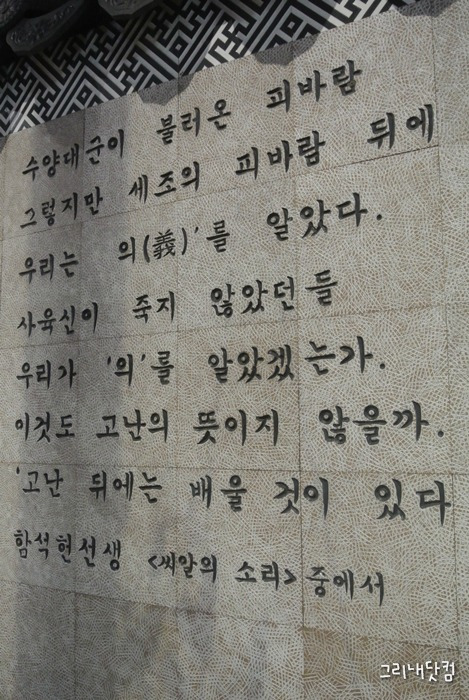 수양대군이 불러온 피바람
그렇지만 세조의 피바람 뒤에
우리는 의(義)'를 알았다.
사육신이 죽지 않았던들
우리가 '의'를 알았겠는가.
이것도 고난의 뜻이지 않을까.
'고난 뒤에는 배울 것이 있다
함석헌선생 <씨알의 소리> 중에서
그리내닷컴